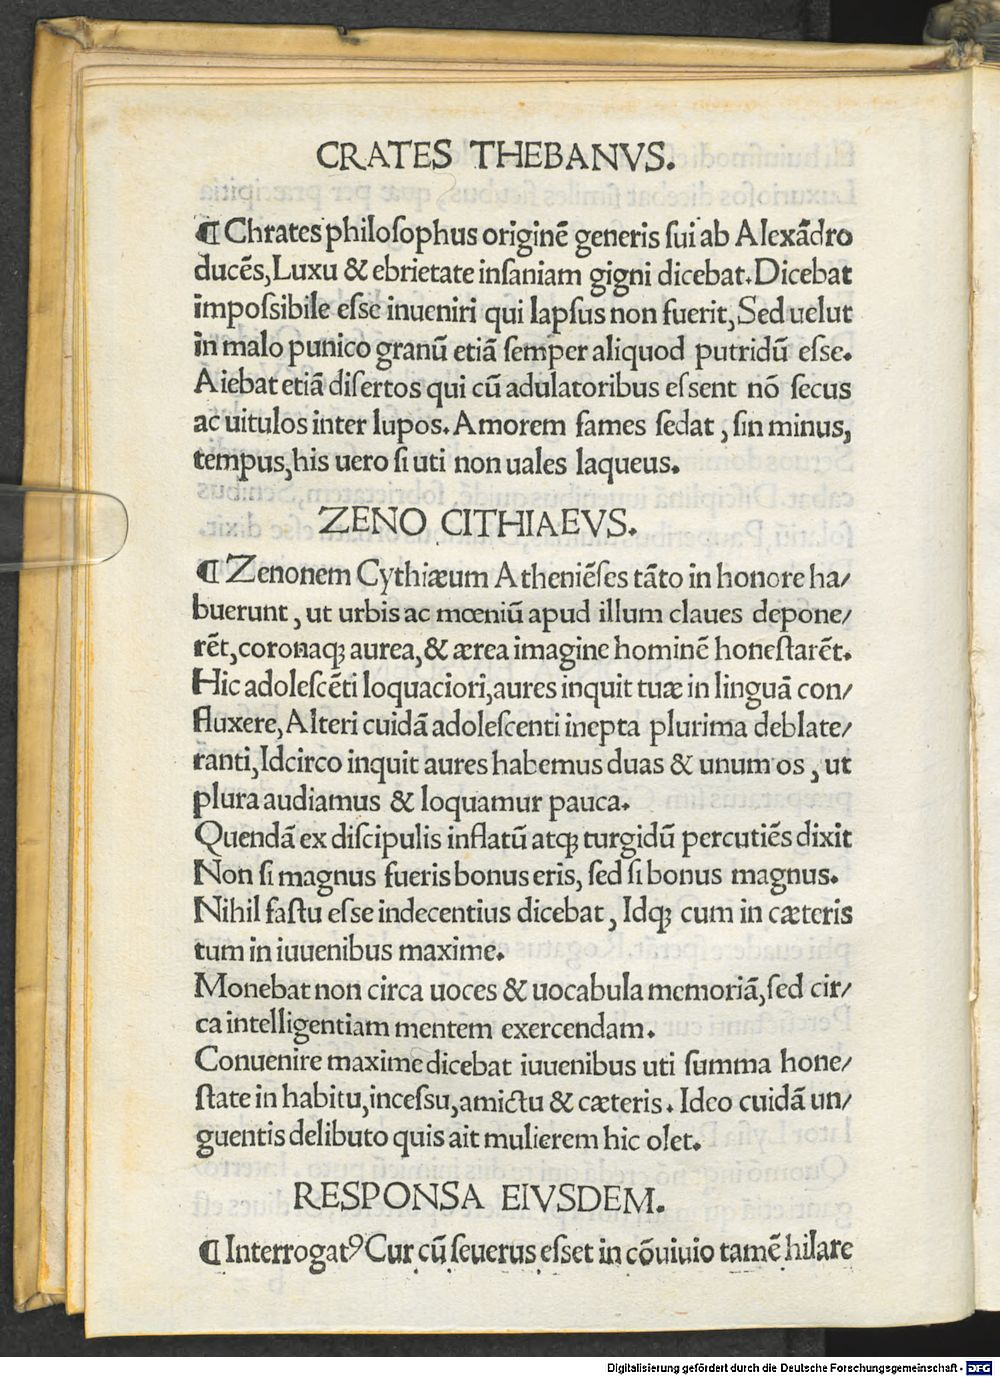 CRATES THEBANVS.
¶ Chrates philoſophus originē generis ſui ab Alexādro
ducēs, Luxu & ebrietate inſaniam gigni dicebat. Dicebat
impoſsibile eſse inueniri qui lapſus non fuerit, Sed uelut
in malo punico granū etiā ſemper aliquod putridū eſse.
Aiebat etiā diſertos qui cū adulatoribus eſsent nō ſecus
ac uitulos inter lupos. Amorem fames ſedat, ſin minus,
tempus, his uero ſi uti non uales laqueus.
ZENO CITHIAEVS.
¶ Zenonem Cythiæum Atheniēſes tāto in honore ha/
buerunt, ut urbis ac mœniū apud illum claues depone/
rēt, coronaꝗ aurea, & ærea imagine hominē honeſtarēt.
Hic adoleſcēti loquaciori, aures inquit tuæ in linguā con/
fluxere, Alteri cuidā adoleſcenti inepta plurima deblate/
ranti, Idcirco inquit aures habemus duas & unum os, ut
plura audiamus & loquamur pauca.
Quendā ex diſcipulis inflatū atꝗ turgidū percutiēs dixit
Non ſi magnus fueris bonus eris, ſed ſi bonus magnus.
Nihil faſtu eſse indecentius dicebat, Idꝗ cum in cæteris
tum in iuuenibus maxime.
Monebat non circa uoces & uocabula memoriā, ſed cir/
ca intelligentiam mentem exercendam.
Conuenire maxime dicebat iuuenibus uti ſumma hone/
ſtate in habitu, inceſsu, amictu & cæteris. Ideo cuidā un/
guentis delibuto quis ait mulierem hic olet.
RESPONSA EIVSDEM.
¶ Interrogatꝰ Cur cū ſeuerus eſset in cōuiuio tamē hilare
Digitalisierung gefördert durch die Deutsche Forschungsgemeinschaft - DFG